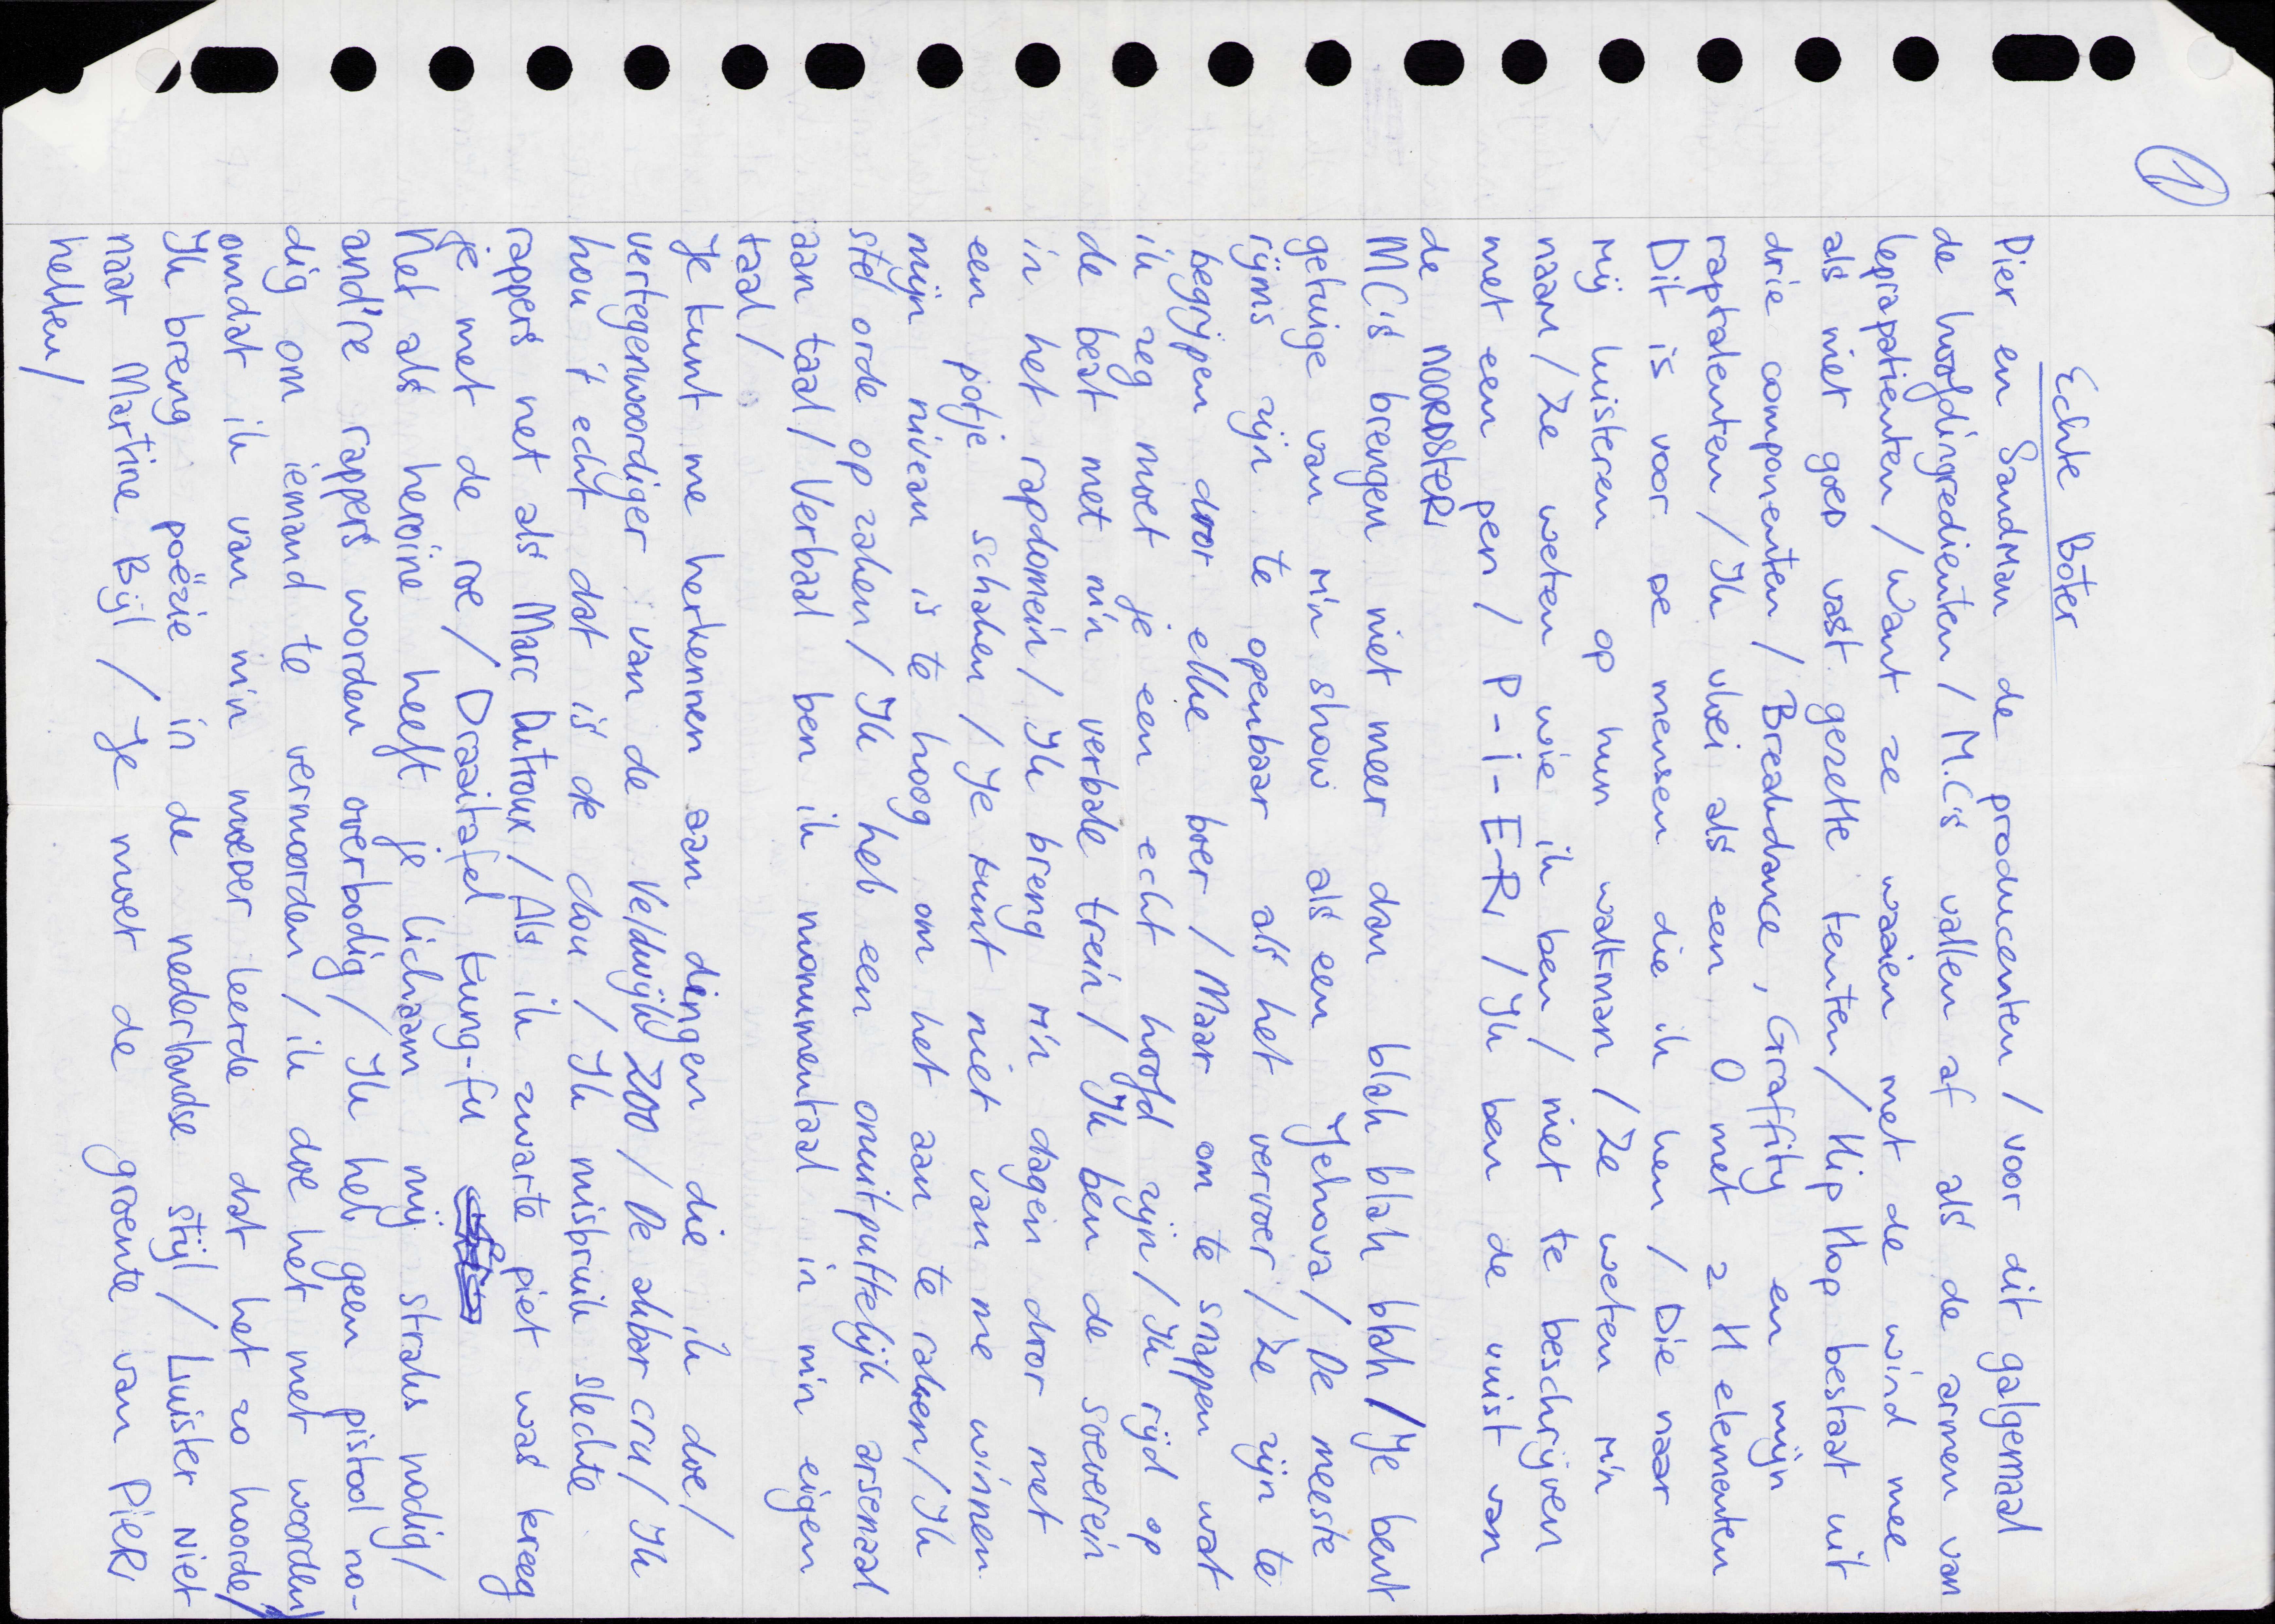 1
Echte Boter
Pier en Sandman de producenten / voor dit galgemaal
de hoofdingredienten / M.C.'s vallen af als de armen van
leprapatienten / want ze waaien met de wind mee
als niet goed vast gezette tenten / Hip Hop bestaat uit
drie componenten / Breakdance, Graffity en mijn
raptalenten / Ik vloei als een O met 2 H elementen
Dit is voor de mensen die ik ken / Die naar
mij luisteren op hun walkman / Ze weten m'n
naam / Ze weten wie ik ben / niet te beschrijven
met een pen / P-i-E-R / Ik ben de vuist van
de NOORDSTER
MC's brengen niet meer dan blah blah blah blah / Je bent
getuige van m'n show als een Jehova / De meeste
rijms zijn te openbaar als het vervoer / Ze zijn te
begrijpen door elke boer / Maar om te snappen wat
ik zeg moet je een echt hoofd zijn / Ik rijd op
de beat met m'n verbale trein / Ik ben de soeverein
in het rapdomein / Ik breng m'n dagen door met
een potje schaken / Je kunt niet van me winnen
mijn niveau is te hoog om het aan te raken / Ik
stel orde op zaken / Ik heb een onuitputtelijk arsenaal
aan taal / Verbaal ben ik monumentaal in m'n eigen
taal /
Je kunt me herkennen aan dingen die ik doe /
vertegenwoordiger van de Veldwijk 200 / De akbar cru / Ik
hou 't echt dat is de clou / Ik misbruik slechte
rappers net als Marc Dutroux / Als ik zwarte piet was kreeg
je met de roe / Draaitafel kung-fu
Net als heroine heeft je lichaam mij straks nodig /
and're rappers worden overbodig / Ik heb geen pistool no-
dig om iemand te vermoorden / ik doe het met woorden /
omdat ik van m'n moeder leerde dat het zo hoorde /
Ik breng poëzie in de nederlandse stijl / Luister niet
naar Martine Bijl / Je moet de groente van PiER
hebben /